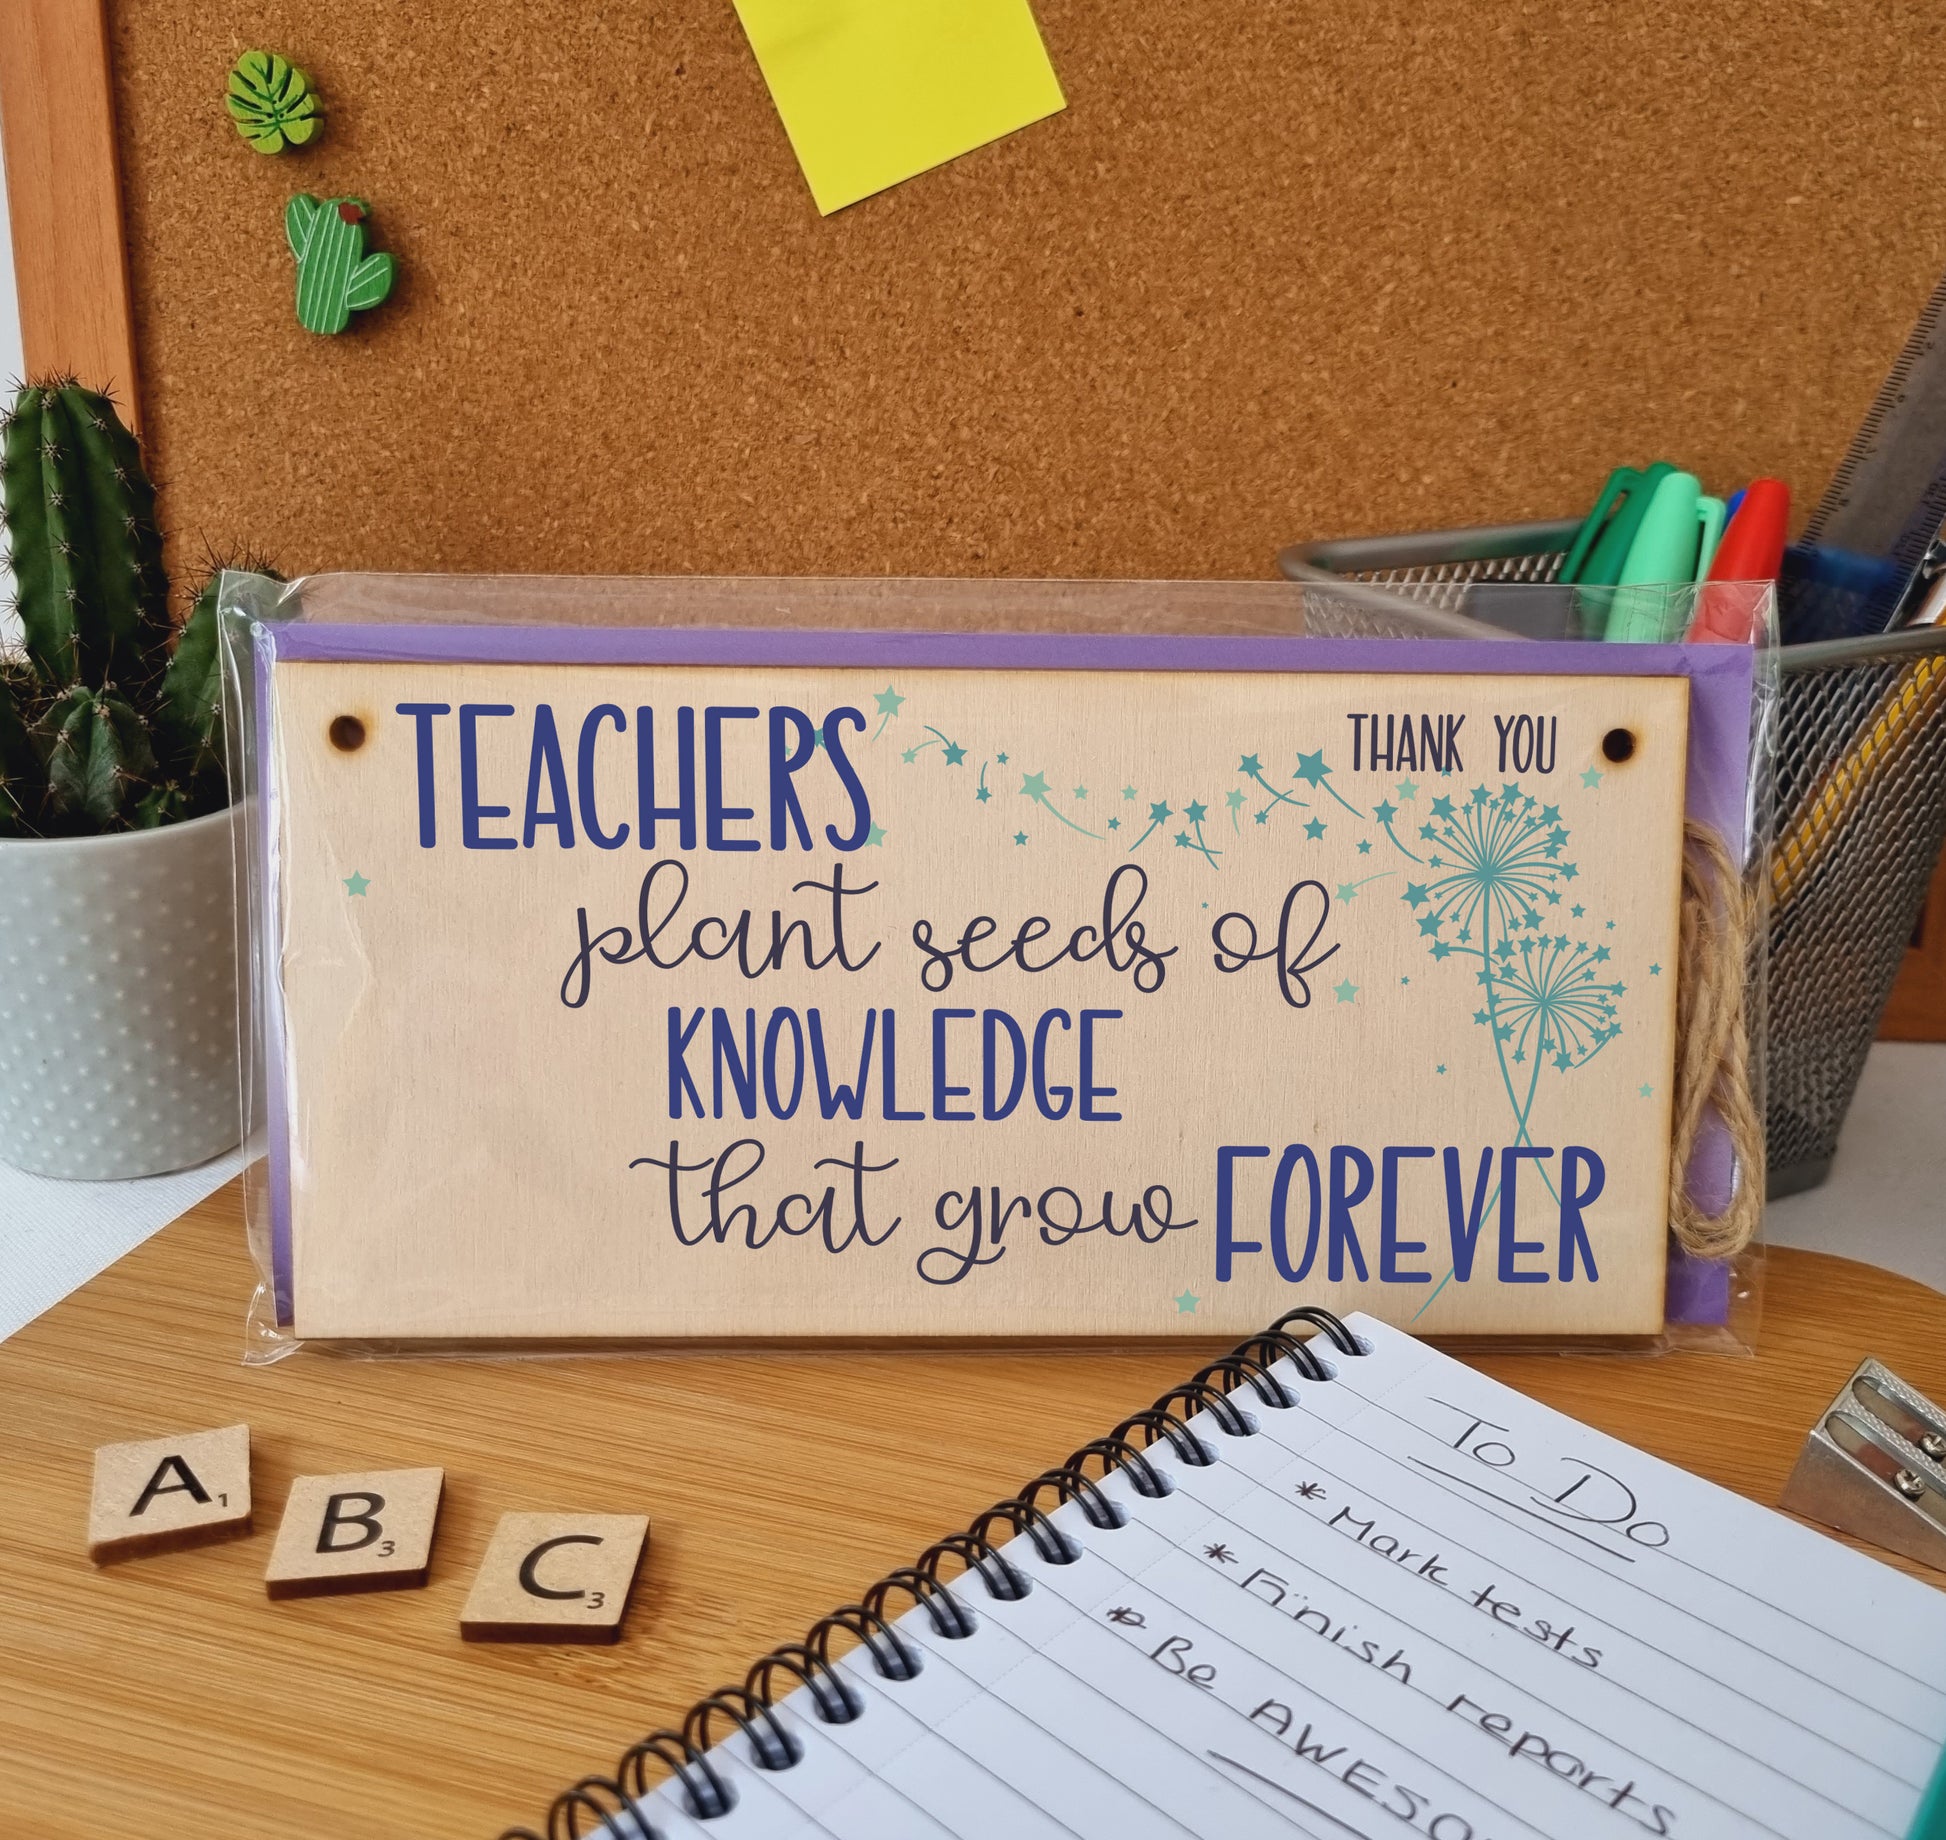 TEACHERS
THANK YOU
plant seeds of
KNOWLEDGE
that grow FOREVER
A1
B3
C3
To Do
* Mark tests
* Finish reports
* Be AWESO